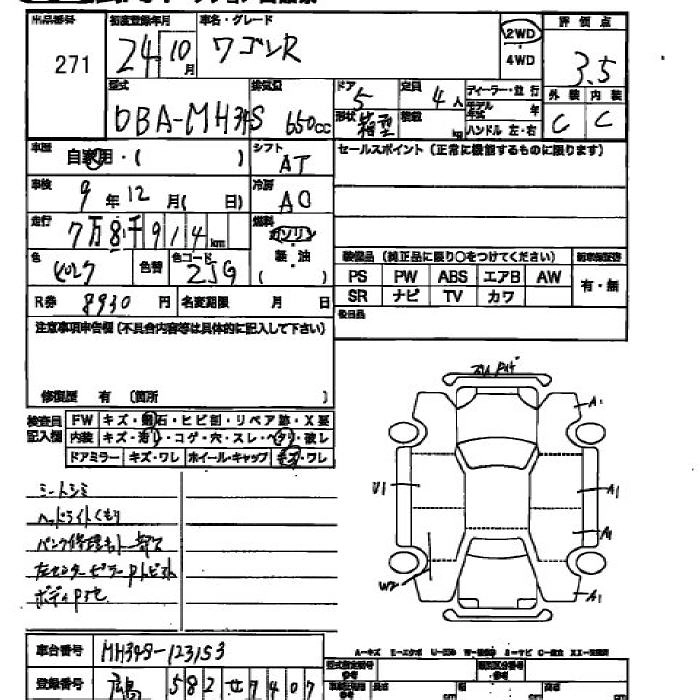 出品番号 初度登録年月 車名・グレード 評価点
271 24 10月 ワゴンR 2WD・4WD 3.5
型式 排気量 ドア 定員 ディーラー・並行 外装 内装
DBA-MH34S 650cc 5 4人 モデル年式 年 C C
形状 箱型 積載 kg ハンドル 左・右
車歴 自家用・( ) シフト AT セールスポイント(正常に機能するものに限ります)
車検 9年12月( 日) 冷房 AC
走行 7万8千914km 燃料 ガソリン
軽・油
( )
色 色替 色コード ZJG
装備品(純正品に限り○をつけてください) 新車保証書
PS PW ABS エアB AW 有・無
SR ナビ TV カワ
R券 8930円 名変期限 月 日
後日品
注意事項申告欄(不具合内容等は具体的に記入して下さい)
修復歴 有(箇所 )
検査員記入欄 FW キズ・飛石・ヒビ割・リペア跡・X要
内装 キズ・汚れ・コゲ・穴・スレ・ヘタリ・破レ
ドアミラー キズ・ワレ ホイール・キャップ キズ・ワレ
シートシミ
ヘッドライトくもり
A1
U1
A1
W2
A1
車台番号 MH34S-123153
登録番号 広島 582 せ 7407